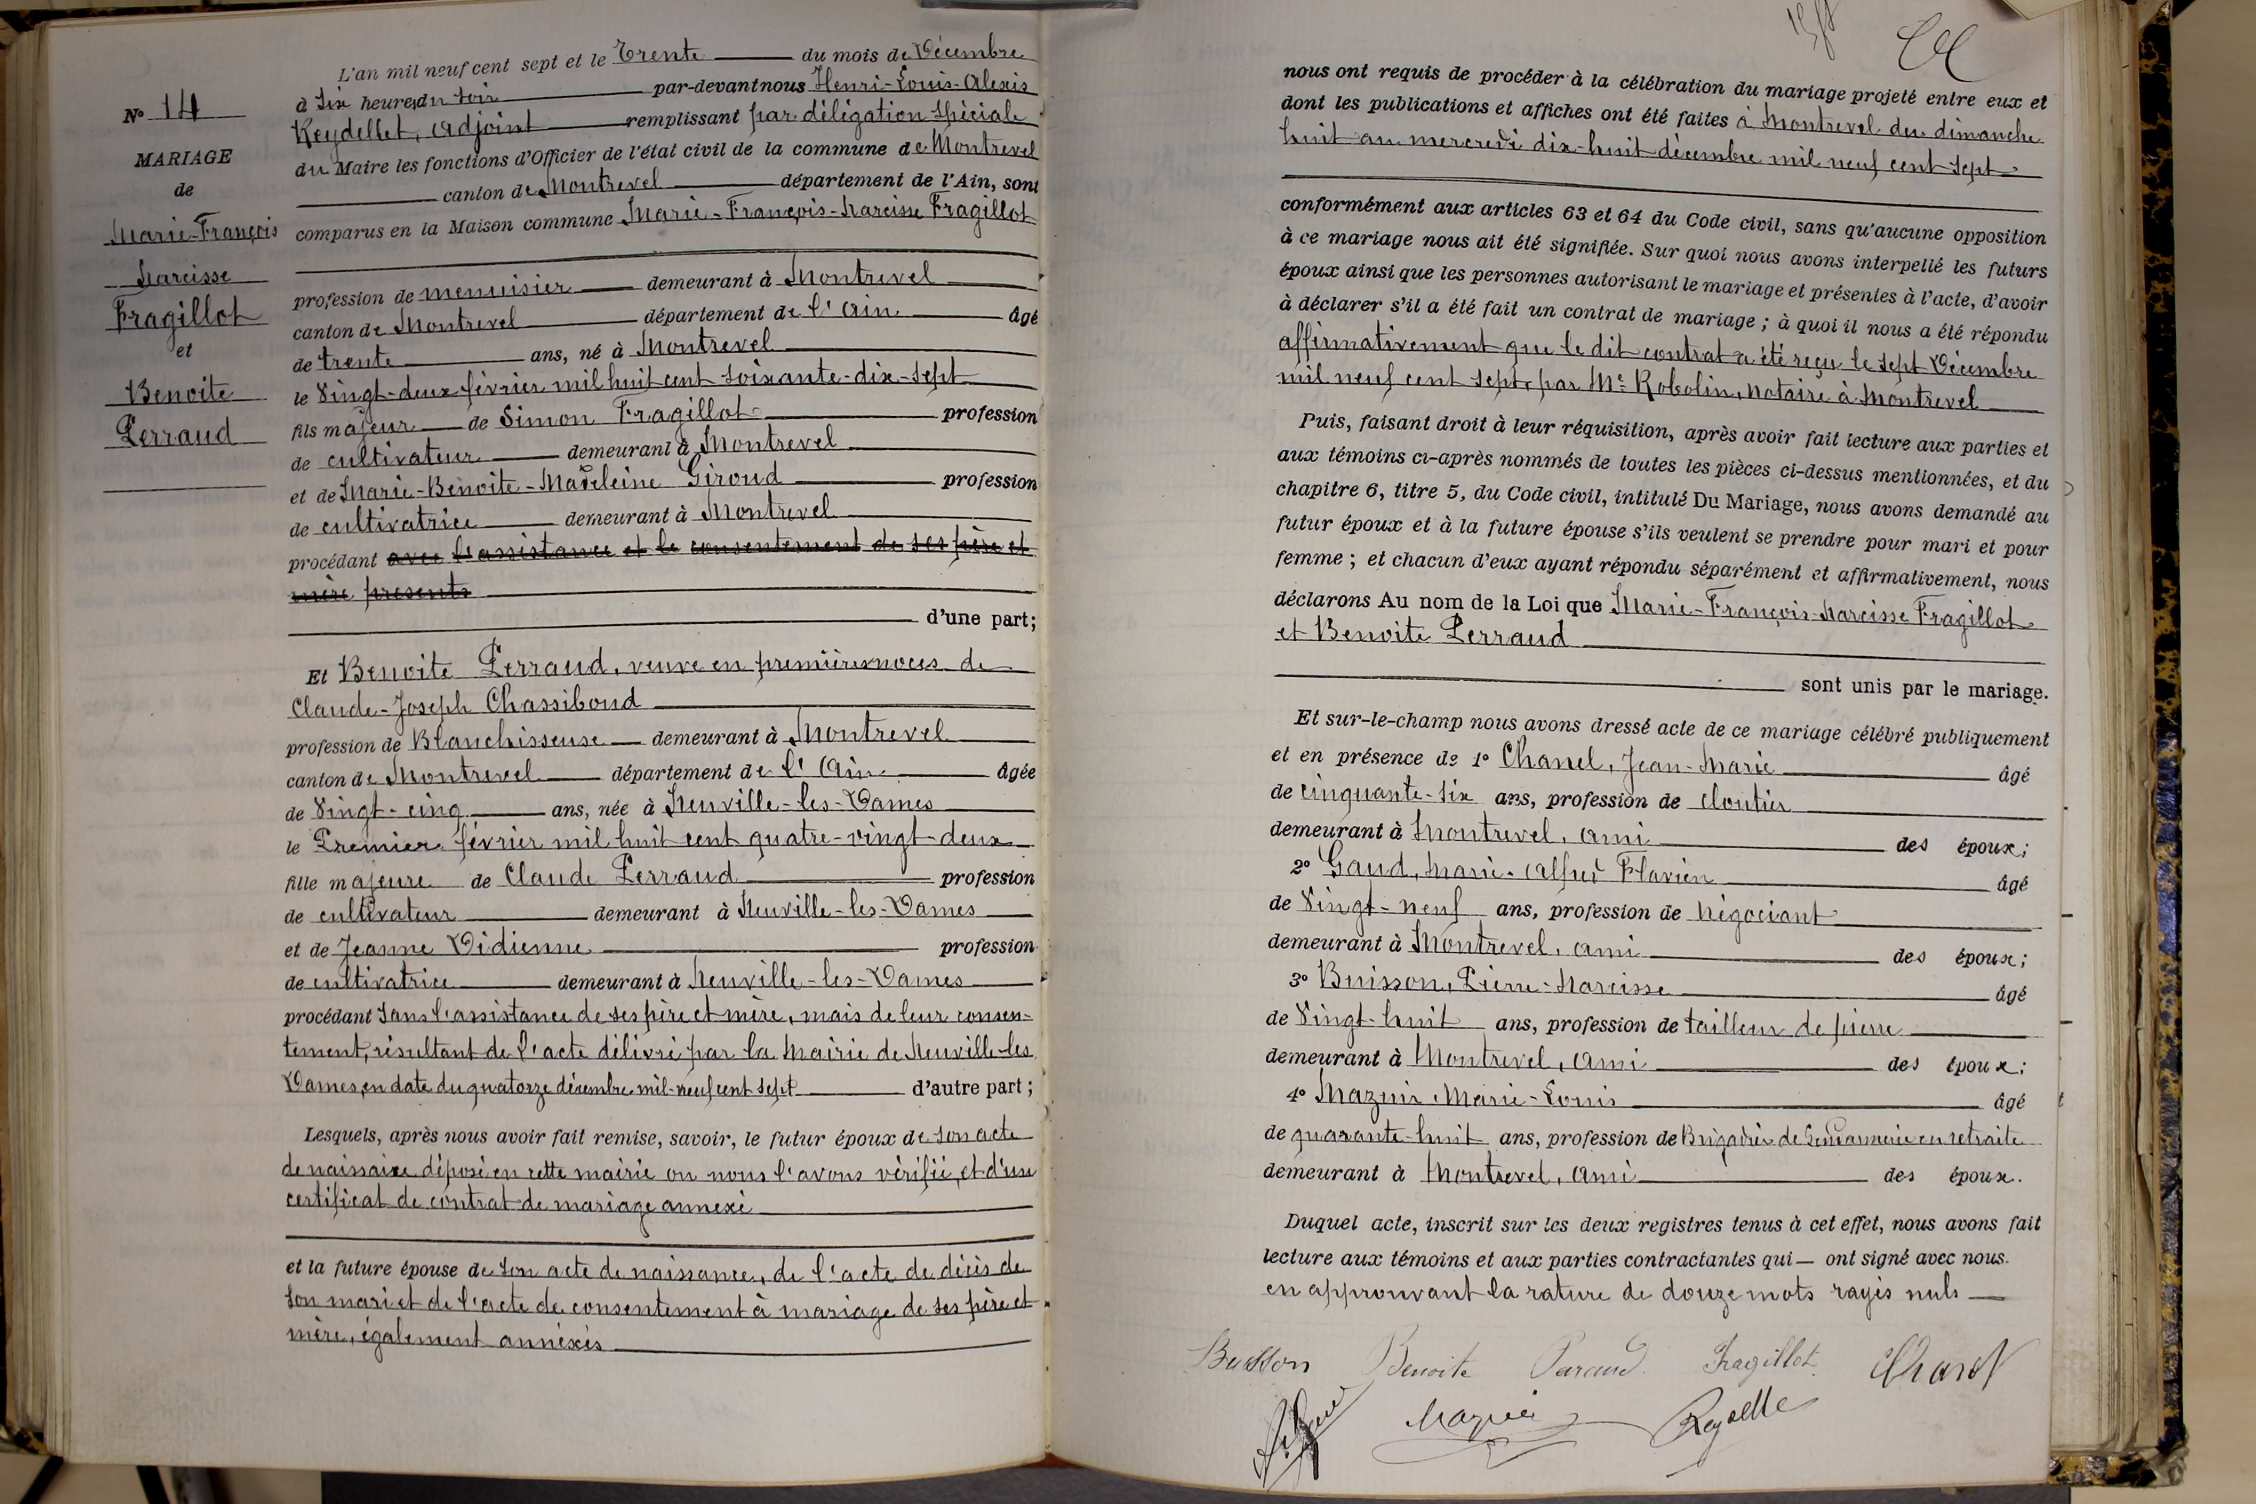 N° 14
MARIAGE
de
Marie-François
Narcisse
Fragillot
et
Benoite
Perraud
L'an mil neuf cent sept et le Trente du mois de Décembre
à six heures du soir par-devant nous Henri-Louis-Alexis
Reydellet, adjoint remplissant par délégation spéciale
du Maire les fonctions d'Officier de l'état civil de la commune de Montrevel
canton de Montrevel département de l'Ain, sont
comparus en la Maison commune Marie-François-Narcisse Fragillot
profession de menuisier demeurant à Montrevel
canton de Montrevel département de l'Ain âgé
de trente ans, né à Montrevel
le Vingt-deux février mil huit cent soixante-dix-sept
fils majeur de Simon Fragillot profession
de cultivateur demeurant à Montrevel
et de Marie-Benoite-Madeleine Giroud profession
de cultivatrice demeurant à Montrevel
procédant avec l'assistance et le consentement de ses père et
mère présents
d'une part;
Et Benoite Perraud, veuve en premières noces de
Claude-Joseph Chassiboud
profession de Blanchisseuse demeurant à Montrevel
canton de Montrevel département de l'Ain âgée
de Vingt-cinq ans, née à Neuville-les-Dames
le Premier février mil huit cent quatre-vingt-deux
fille majeure de Claude Perraud profession
de cultivateur demeurant à Neuville-les-Dames
et de Jeanne Didienne profession
de cultivatrice demeurant à Neuville-les-Dames
procédant sans l'assistance de ses père et mère, mais de leur consen-
tement, résultant de l'acte délivré par la Mairie de Neuville-les
Dames, en date du quatorze décembre mil-neuf cent sept d'autre part;
Lesquels, après nous avoir fait remise, savoir, le futur époux de son acte
de naissance déposé en cette mairie où nous l'avons vérifié, et d'un
certificat de contrat de mariage annexé
et la future épouse de son acte de naissance, de l'acte de décès de
son mari et de l'acte de consentement à mariage de ses père et
mère, également annexés
nous ont requis de procéder à la célébration du mariage projeté entre eux et
dont les publications et affiches ont été faites à Montrevel du dimanche
huit au mercredi dix-huit décembre mil neuf cent sept
conformément aux articles 63 et 64 du Code civil, sans qu'aucune opposition
à ce mariage nous ait été signifiée. Sur quoi nous avons interpellé les futurs
époux ainsi que les personnes autorisant le mariage et présentes à l'acte, d'avoir
à déclarer s'il a été fait un contrat de mariage; à quoi il nous a été répondu
affirmativement que le dit contrat a été reçu le sept Décembre
mil neuf cent sept, par Me Robolin, notaire à Montrevel
Puis, faisant droit à leur réquisition, après avoir fait lecture aux parties et
aux témoins ci-après nommés de toutes les pièces ci-dessus mentionnées, et du
chapitre 6, titre 5, du Code civil, intitulé Du Mariage, nous avons demandé au
futur époux et à la future épouse s'ils veulent se prendre pour mari et pour
femme; et chacun d'eux ayant répondu séparément et affirmativement, nous
déclarons Au nom de la Loi que Marie-François-Narcisse Fragillot
et Benoite Perraud
sont unis par le mariage.
Et sur-le-champ nous avons dressé acte de ce mariage célébré publiquement
et en présence de 1° Chanel, Jean-Marie âgé
de cinquante-six ans, profession de cloutier
demeurant à Montrevel, ami des époux;
2° Gaud, Marie-Alfred Flavien âgé
de Vingt-neuf ans, profession de négociant
demeurant à Montrevel, ami des époux;
3° Buisson, Pierre-Narcisse âgé
de Vingt-huit ans, profession de tailleur de pierre
demeurant à Montrevel, ami des époux;
4° Mazuir Marie-Louis âgé
de quarante-huit ans, profession de Brigadier de Gendarmerie en retraite
demeurant à Montrevel, ami des époux.
Duquel acte, inscrit sur les deux registres tenus à cet effet, nous avons fait
lecture aux témoins et aux parties contractantes qui — ont signé avec nous.
en approuvant la rature de douze mots rayés nuls
Buisson Benoite Peraud Fragillot Chanel
Mazuir Reydellet